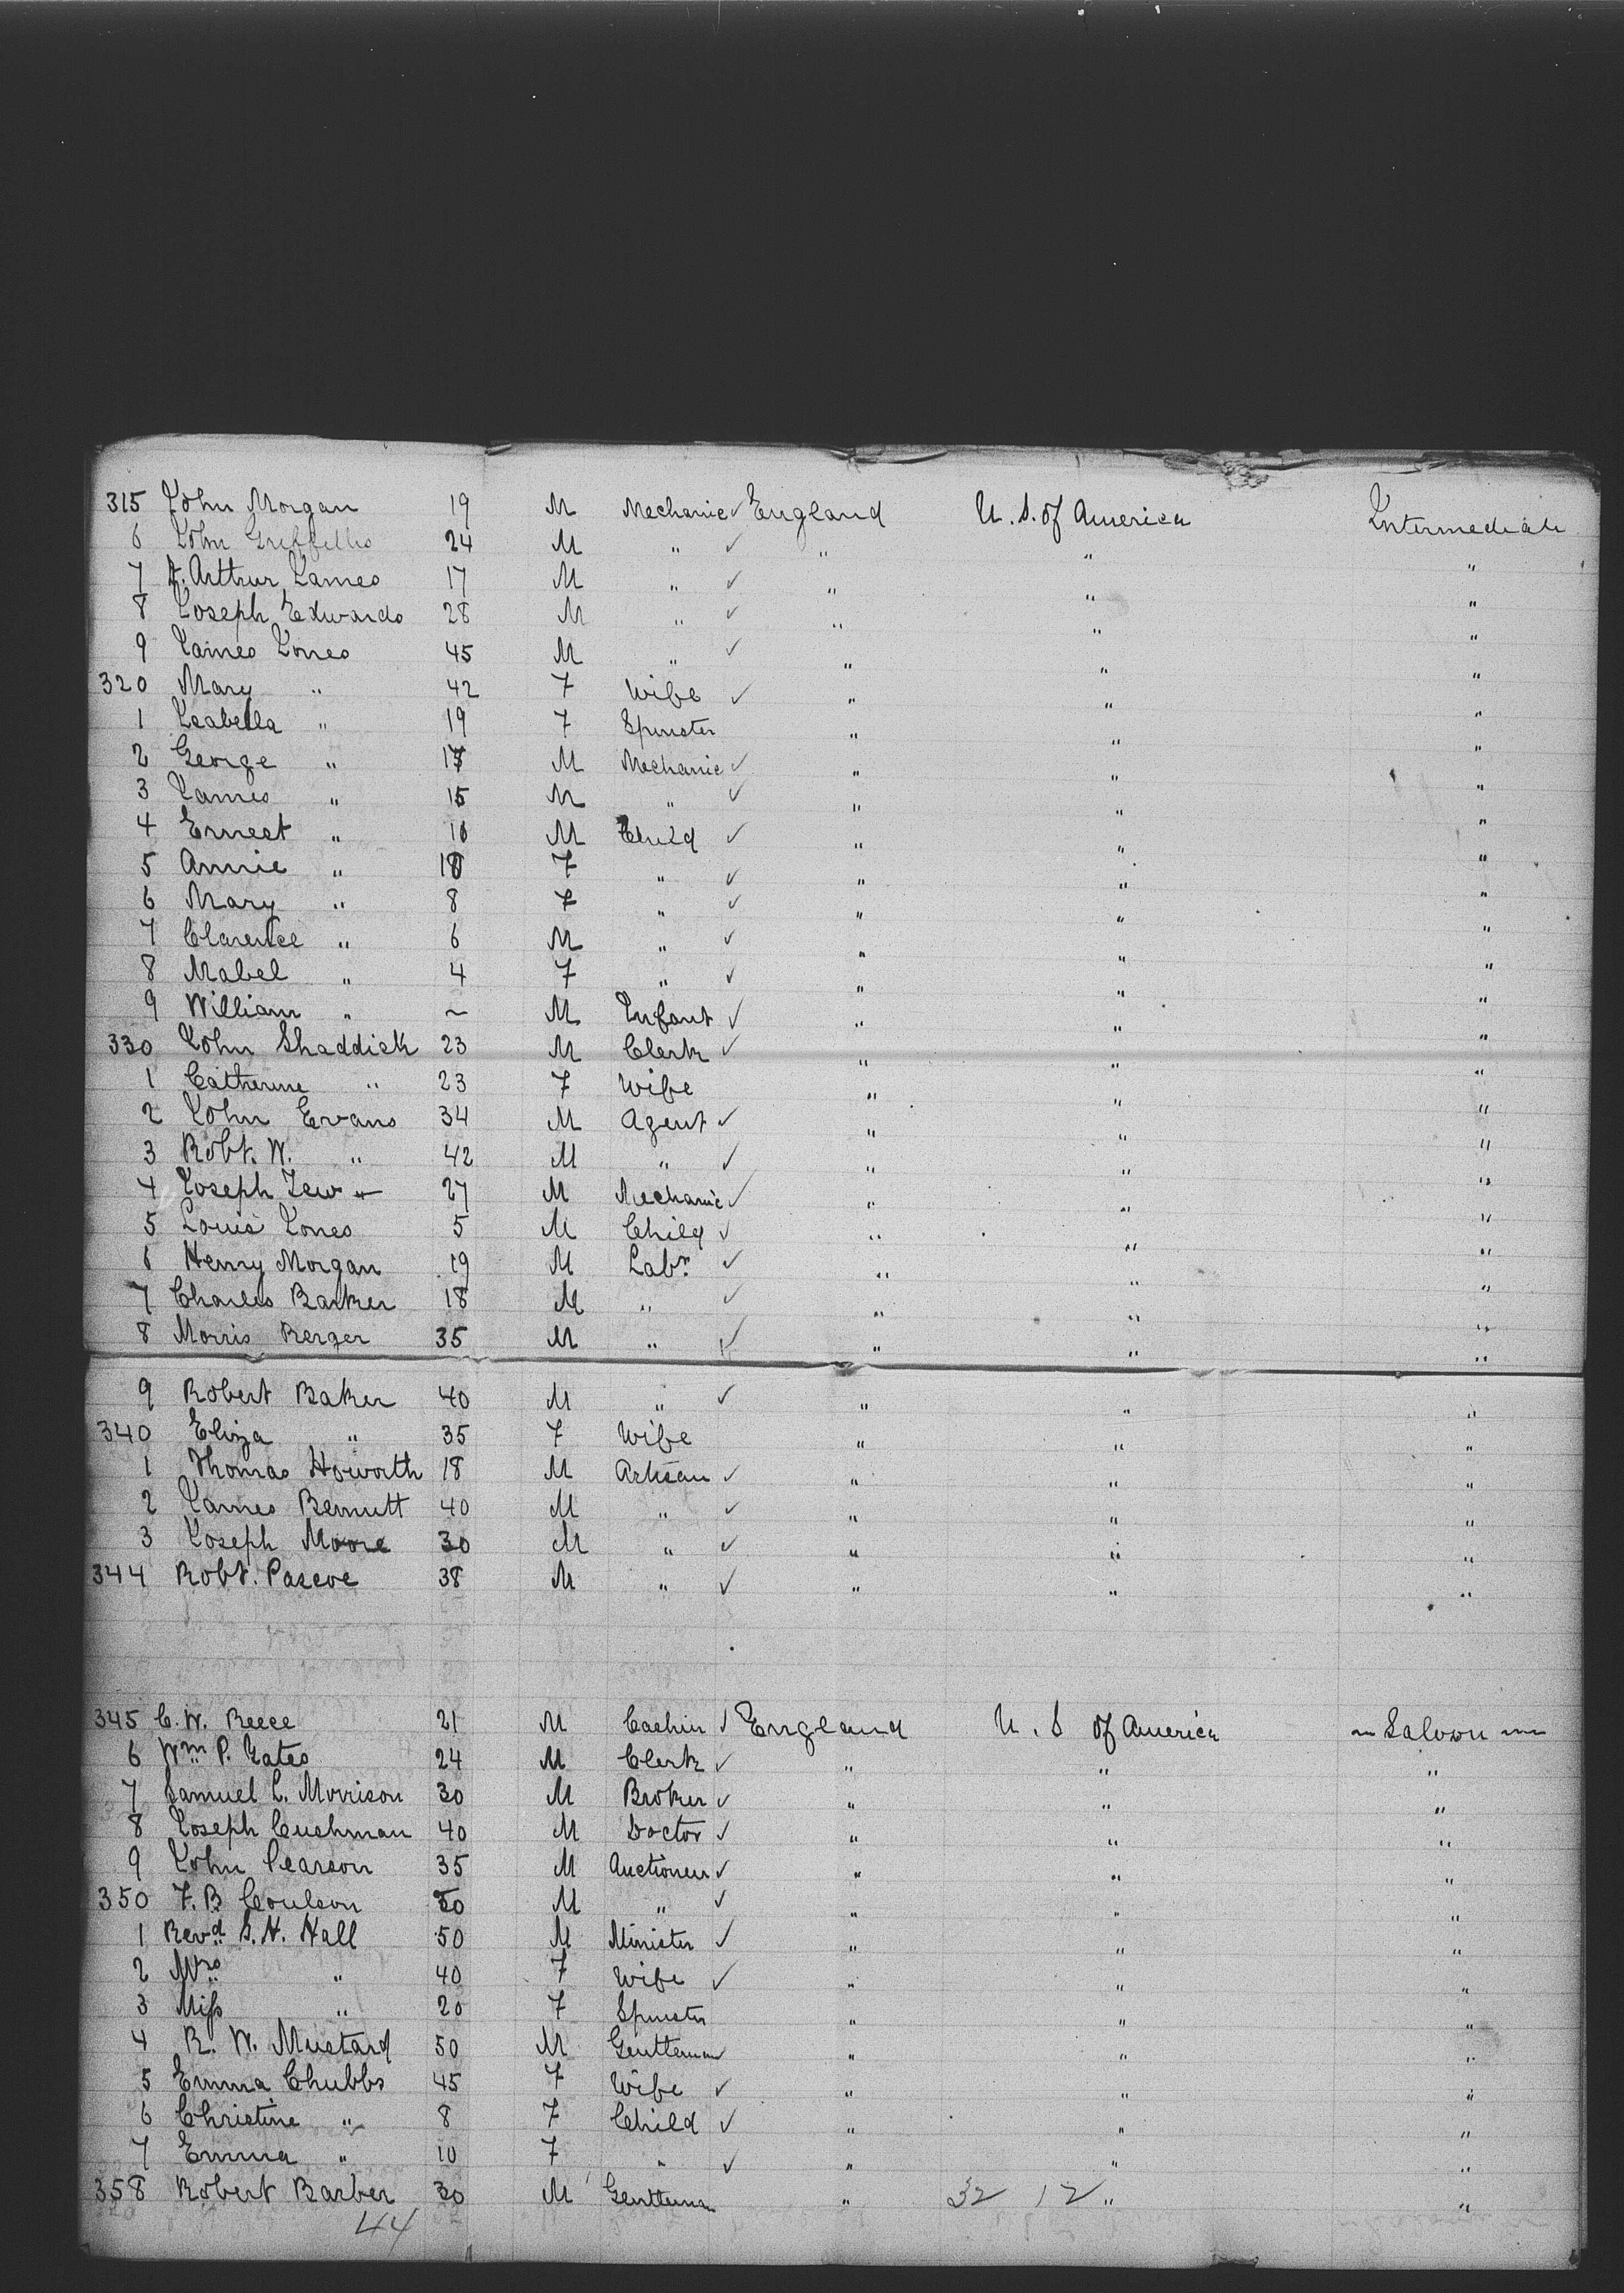 315 John Morgan 19 M Mechanic ✓ England U. S. of America Intermediate
6 John Griffiths 24 M " ✓ " " "
7 Arthur James 17 M " ✓ " " "
8 Joseph Edwards 28 M " ✓ " " "
9 James Jones 45 M " ✓ " " "
320 Mary " 42 F Wife ✓ " " "
1 Isabella " 19 F Spinster " " "
2 George " 17 M Mechanic ✓ " " "
3 James " 15 M " ✓ " " "
4 Ernest " M Child ✓ " " "
5 Annie " 10 F " ✓ " " "
6 Mary " 8 F " ✓ " " "
7 Clarence " 6 M " ✓ " " "
8 Mabel " 4 F " ✓ " " "
9 William " ~ M Infant ✓ " " "
330 John Shaddick 23 M Clerk ✓ " " "
1 Catherine " 23 F Wife " " "
2 John Evans 34 M Agent ✓ " " "
3 Robt. W. " 42 M " ✓ " " "
4 Joseph Jew 27 M Mechanic ✓ " " "
5 Louis Jones 5 M Child ✓ " " "
6 Henry Morgan 19 M Labr. ✓ " " "
7 Charles Barker 18 M " ✓ " " "
8 Morris Berger 35 M " ✓ " " "
9 Robert Baker 40 M " ✓ " " "
340 Eliza " 35 F Wife " " "
1 Thomas Howorth 18 M Artisan ✓ " " "
2 James Bennett 40 M " ✓ " " "
3 Joseph Moore 30 M " ✓ " " "
344 Robt. Pascoe 38 M " ✓ " " "
345 C. W. Reece 21 M Cashier ✓ England U. S of America Saloon
6 Wm P. Yates 24 M Clerk ✓ " " "
7 Samuel L. Morrison 30 M Broker ✓ " " "
8 Joseph Cushman 40 M Doctor ✓ " " "
9 John Pearson 35 M Auctioneer ✓ " " "
350 F. B. Coulson 50 M " ✓ " " "
1 Revd. S. H. Hall 50 M Minister ✓ " " "
2 Mrs " 40 F Wife ✓ " " "
3 Miss " 20 F Spinster " " "
4 R. W. Mustard 50 M Gentleman " " "
5 Emma Chubbs 45 F Wife ✓ " " "
6 Christine " 8 F Child ✓ " " "
7 Emma " 10 F " ✓ " " "
358 Robert Barber 30 M Gentleman " 32 12 " "
44